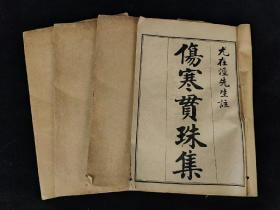 尤在涇先生註
傷寒貫珠集